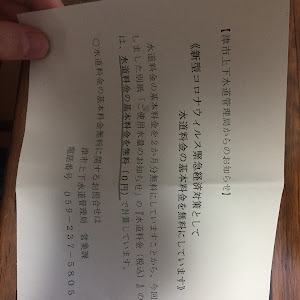 【津市上下水道管理局からのお知らせ】
《新型コロナウイルス緊急経済対策として
水道料金の基本料金を無料にしています》
水道料金の基本料金を2か月分無料にしていますことから、今回
しました別紙「ご使用水量のお知らせ」の『水道料金(税込)』の
は、水道料金の基本料金を無料(0円)で計算しています。
○水道料金の基本料金無料に関するお問合せは
津市上下水道管理局 営業課
電話番号 059-237-5805